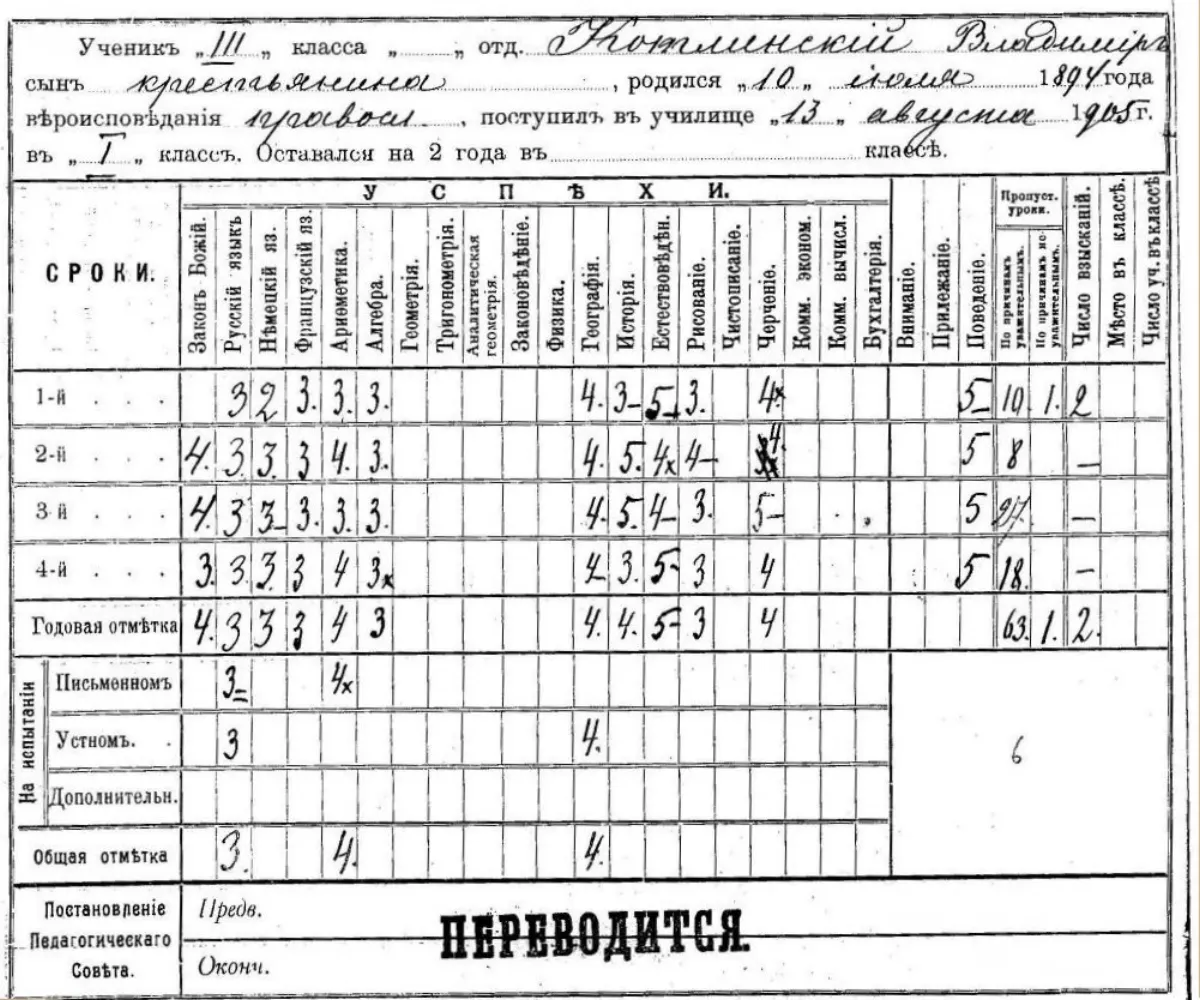 Ученикъ „III„ класса „ „ отд. Котлинскій Владиміръ
сынъ крестьянина , родился „10„ іюля 1894 года
вѣроисповѣданія правосл. , поступилъ въ училище „13„ августа 1905 г.
въ „I„ классъ. Оставался на 2 года въ классѣ.
УСПѢХИ.
СРОКИ. Законъ Божій. Русскій языкъ Нѣмецкій яз. Французскій яз. Ариѳметика. Алгебра. Геометрія. Тригонометрія. Аналитическая геометрія. Законовѣдѣніе. Физика. Географія. Исторія. Естествовѣдѣн. Рисованіе. Чистописаніе. Черченіе. Комм. эконом. Комм. вычисл. Бухгалтерія. Вниманіе. Прилежаніе. Поведеніе. Пропуст. уроки. По причинамъ уважительнымъ. По причинамъ не уважительнымъ. Число взысканій. Мѣсто въ классѣ. Число уч. въ классѣ
1-й . . . 3 2 3. 3. 3. 4. 3- 5- 3. 4x 5- 10. 1. 2
2-й . . . 4. 3. 3. 3 4. 3. 4. 5. 4x 4- 4. 5 8 —
3-й . . . 4. 3 3- 3. 3. 3. 4. 5. 4- 3. 5- 5 27. —
4-й . . . 3. 3. 3. 3 4 3x 4 3. 5- 3 4 5 18. —
Годовая отмѣтка 4. 3 3 3 4 3 4. 4. 5- 3 4 63. 1. 2.
На испытаніи
Письменномъ 3= 4x
Устномъ. . 3 4.
6
Дополнительн.
Общая отмѣтка 3. 4. 4.
Постановленіе Педагогическаго Совѣта.
Предв.
ПЕРЕВОДИТСЯ.
Оконч.